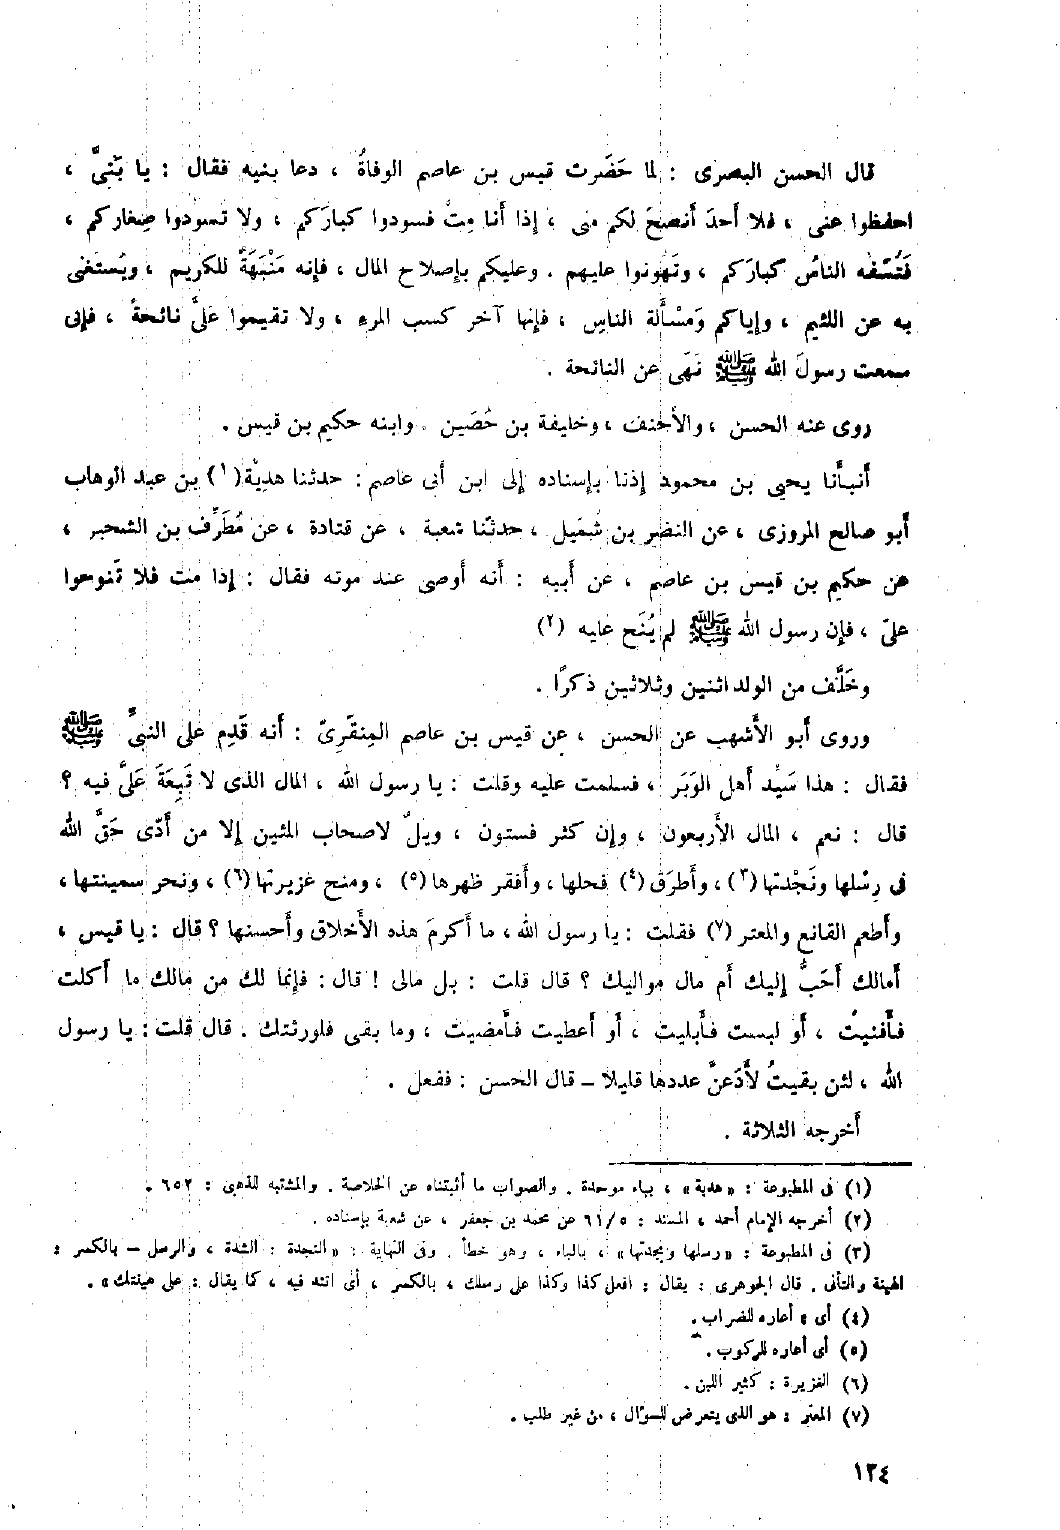 قال الحسن البصرى : لما حَضَرت قيس بن عاصم الوفاةُ ، دعا بنيه فقال : يا بَنِىَّ ،
احفظوا عنى ، فلا أَحدَ أَنصحَ لكم منى ، إذا أَنا مِتُّ فسودوا كبارَكم ، ولا تسودوا صِغاركم ،
فَتُسَفِّه الناسُ كبارَكم ، وتَهونوا عليهم . وعليكم بإِصلاح المال ، فإِنه مَنْبَهَةٌ للكريم ، ويُستغنى
به عن اللئيم ، وإِياكم وَمَسْأَلة الناسِ ، فإِنها آخر كسب المرءِ ، ولا تقيموا عَلىَّ نائحةً ، فإِنى
سمعت رسولَ الله ﷺ نَهَى عن النائحة .
روى عنه الحسن ، والأَحنف ، وخليفة بن حُصَين . وابنه حكيم بن قيس .
أَنبأَنا يحيى بن محمود إِذنا بإِسناده إِلى ابن أَبى عاصم : حدثنا هديّة(١) بن عبد الوهاب
أَبو صالح المروزى ، عن النضر بن شُمَيل ، حدثنا شعبة ، عن قتادة ، عن مُطَرِّف بن الشخير ،
عن حكيم بن قيس بن عاصم ، عن أَبيه : أَنه أَوصى عند موته فقال : إِذا مت فلا تَنوحوا
علىّ ، فإِن رسول الله ﷺ لم يُنَح عليه (٢)
وخَلَّف من الولد اثنين وثلاثين ذكرًا .
وروى أَبو الأَشهب عن الحسن ، عن قيس بن عاصم المِنقَرِىّ : أَنه قَدِم على النبىِّ ﷺ
فقال : هذا سَيِّد أَهل الوَبَر ، فسلمت عليه وقلت : يا رسول الله ، المال الذى لا تَبِعَةَ عَلَىَّ فيه ؟
قال : نعم ، المال الأَربعون ، وإِن كثر فستون ، ويلٌ لاصحاب المئين إِلا من أَدّى حَقَّ الله
فى رِسْلها ونَجْدتها (٣) ، وأَطرَق (٤) فحلها ، وأَفقر ظهرها (٥) ، ومنح غزيرتها (٦) ، ونحر سمينتها ،
وأَطعم القانع والمعتر (٧) فقلت : يا رسول الله ، ما أَكرمَ هذه الأَخلاق وأَحسنها ؟ قال : يا قيس ،
أَمالك أَحَبُّ إِليك أَم مال مواليك ؟ قال قلت : بل مالى ! قال : فإِنما لك من مالك ما أَكلت
فأَفنيتُ ، أَو لبست فأَبليت ، أَو أَعطيت فأَمضيت ، وما بقى فلورثتك . قال قلت : يا رسول
الله ، لئن بقيتُ لأَدَعنَّ عددها قليلا – قال الحسن : ففعل .
أَخرجه الثلاثة .
(١) فى المطبوعة : «هدبة» ، بباء موحدة . والصواب ما أثبتناه عن الخلاصة . والمشتبه للذهبى : ٦٥٢ .
(٢) أخرجه الإمام أحمد ، المسند : ٦١/٥ عن محمد بن جعفر ، عن شعبة بإسناده .
(٣) فى المطبوعة : «رسلها وبجدتها» ، بالباء ، وهو خطأ . وفى النهاية : «النجدة : الشدة ، والرسل – بالكسر :
الهينة والتأنى . قال الجوهرى : يقال : افعل كذا وكذا على رسلك ، بالكسر ، أى اتئد فيه ، كما يقال : على هينتك» .
(٤) أى : أعاره للضراب .
(٥) أى أعاره للركوب .
(٦) الغزيرة : كثير اللبن .
(٧) المعتر : هو الذى يتعرض للسؤال ، من غير طلب .
١٣٤